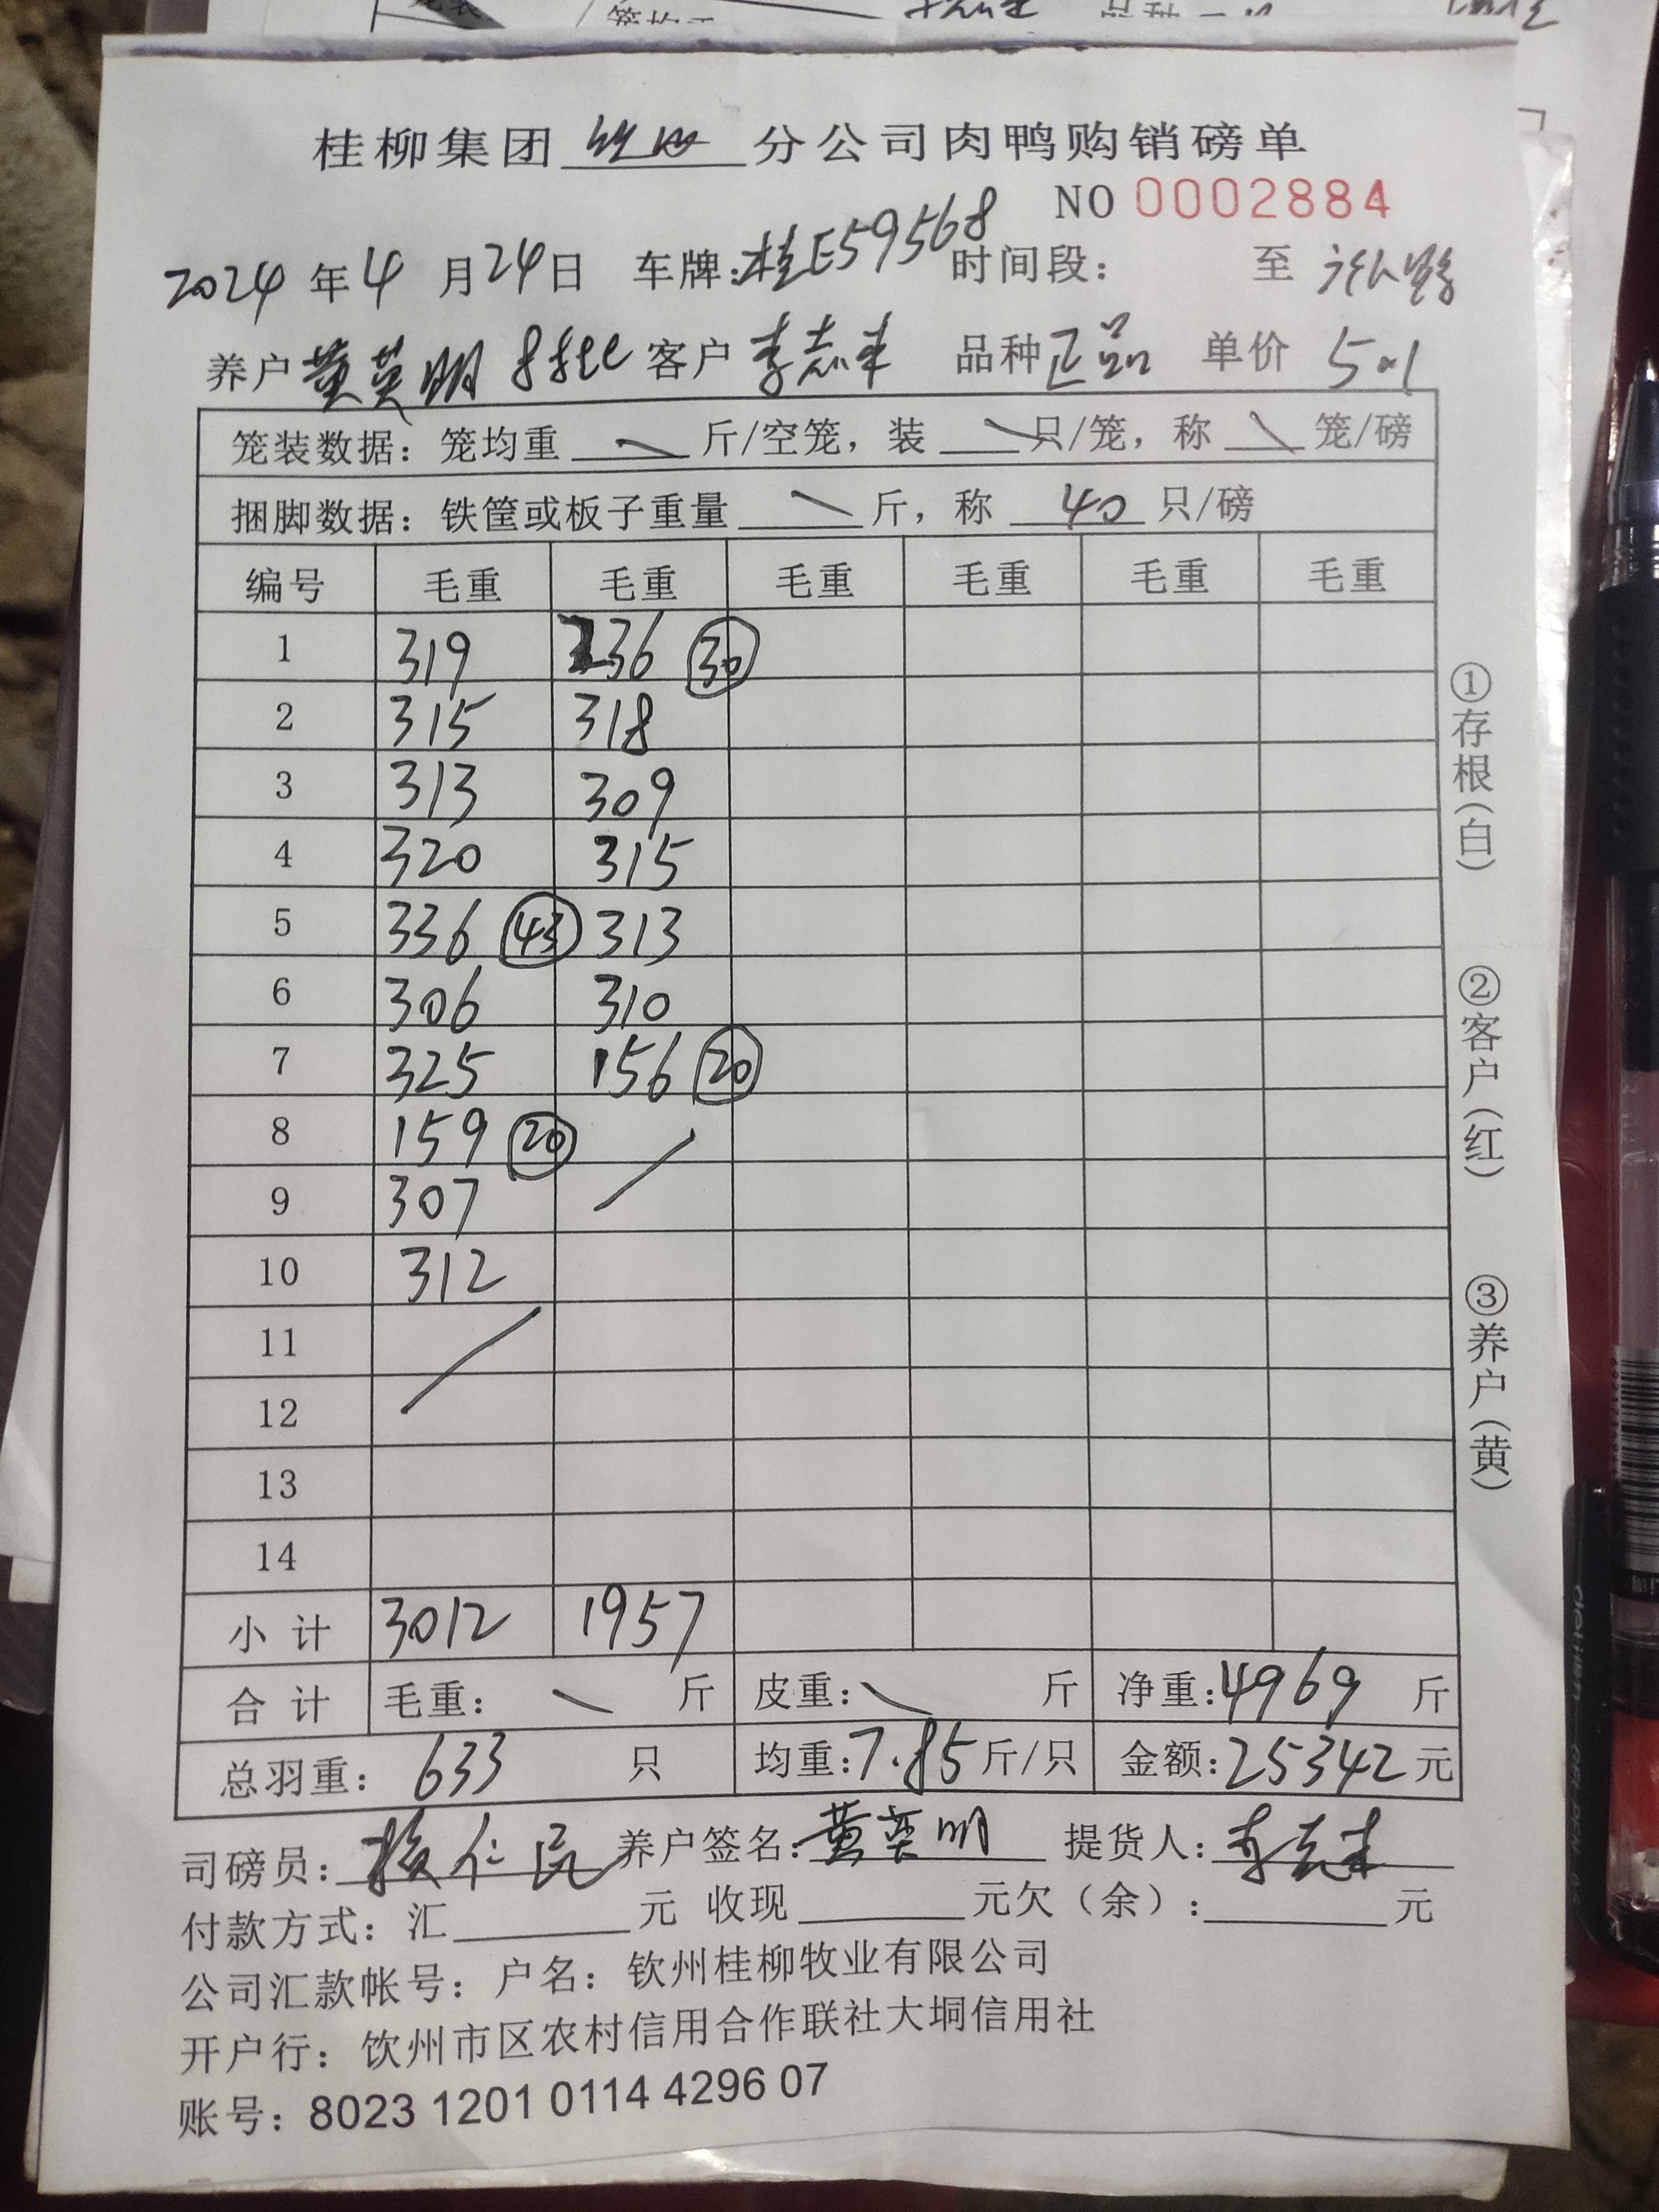 桂柳集团 分公司肉鸭购销磅单
NO 0002884
2024年4月24日 车牌:桂E59568 时间段： 至
养户 黄英明 客户 李志来 品种 正品 单价 5.1
笼装数据：笼均重 斤/空笼，装 只/笼，称 笼/磅
捆脚数据：铁筐或板子重量 斤，称 40 只/磅
编号 毛重 毛重 毛重 毛重 毛重 毛重
1 319 236 30
2 315 318
3 313 309
4 320 315
5 336 43 313
6 306 310
7 325 156 20
8 159 20
9 307
10 312
11
12
13
14
小计 3012 1957
合计 毛重： 斤 皮重： 斤 净重：4969 斤
总羽重：633 只 均重：7.85斤/只 金额：25342元
司磅员： 仁 养户签名：黄英明 提货人：李志来
付款方式：汇 元 收现 元欠（余）： 元
公司汇款帐号：户名：钦州桂柳牧业有限公司
开户行：钦州市区农村信用合作联社大垌信用社
账号：8023 1201 0114 4296 07
①存根（白）
②客户（红）
③养户（黄）